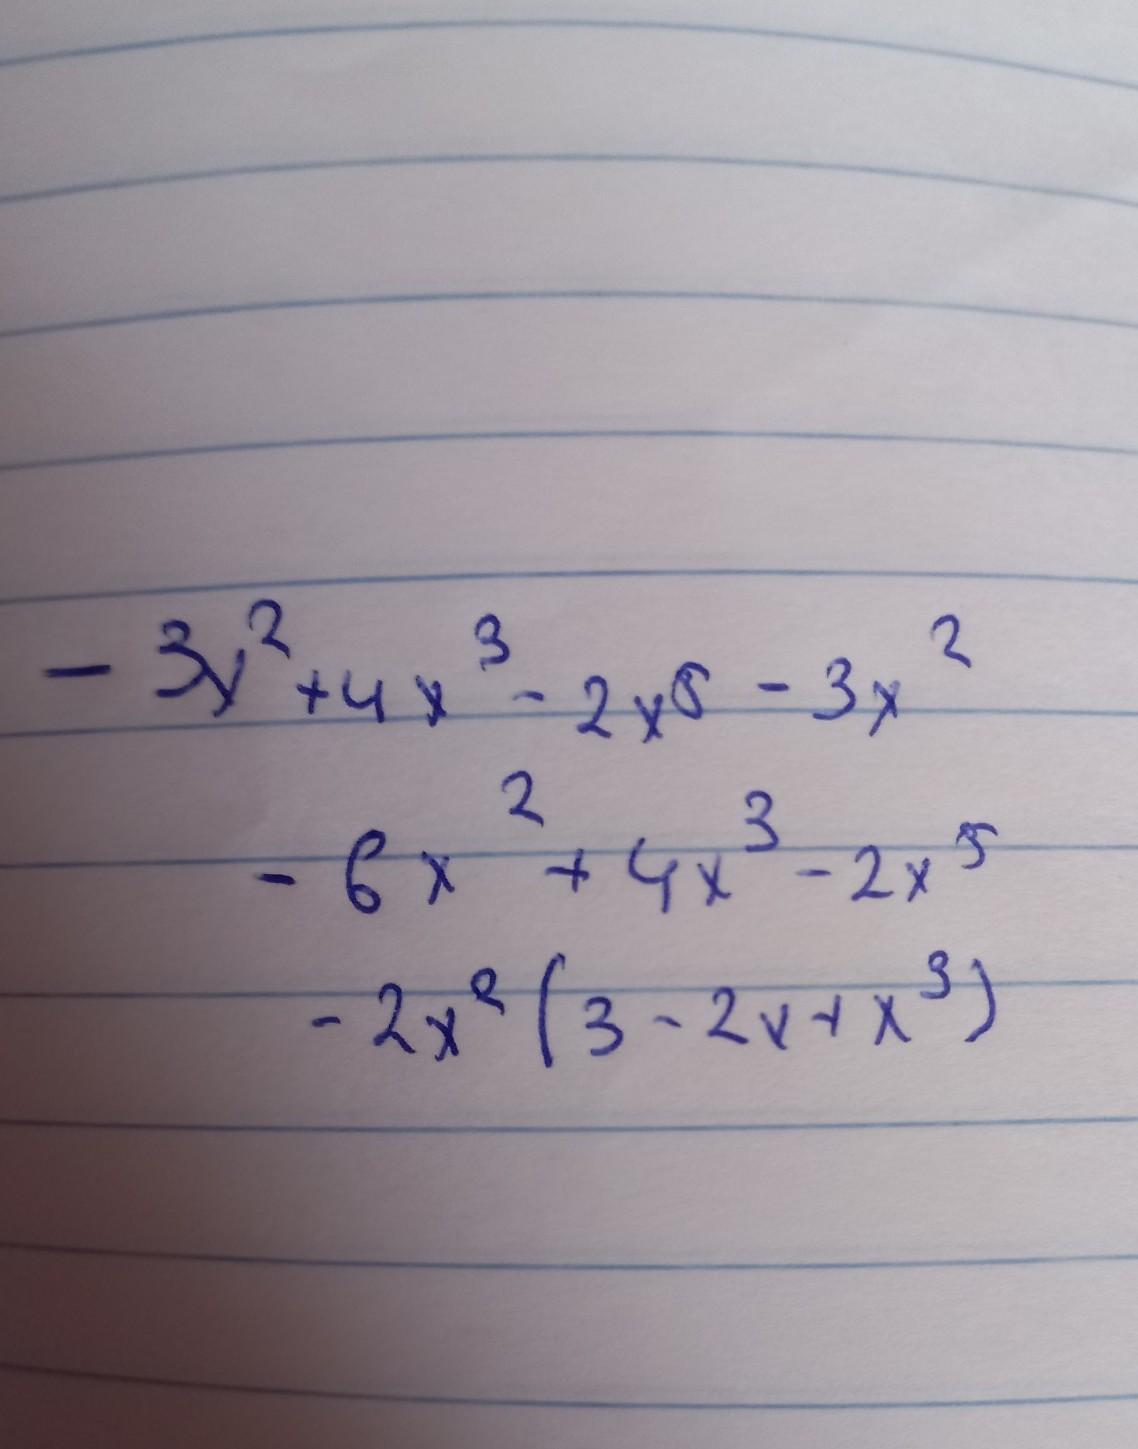 - 3x² + 4x³ - 2x⁵ - 3x²
- 6x² + 4x³ - 2x⁵
- 2x² (3 - 2x + x³)